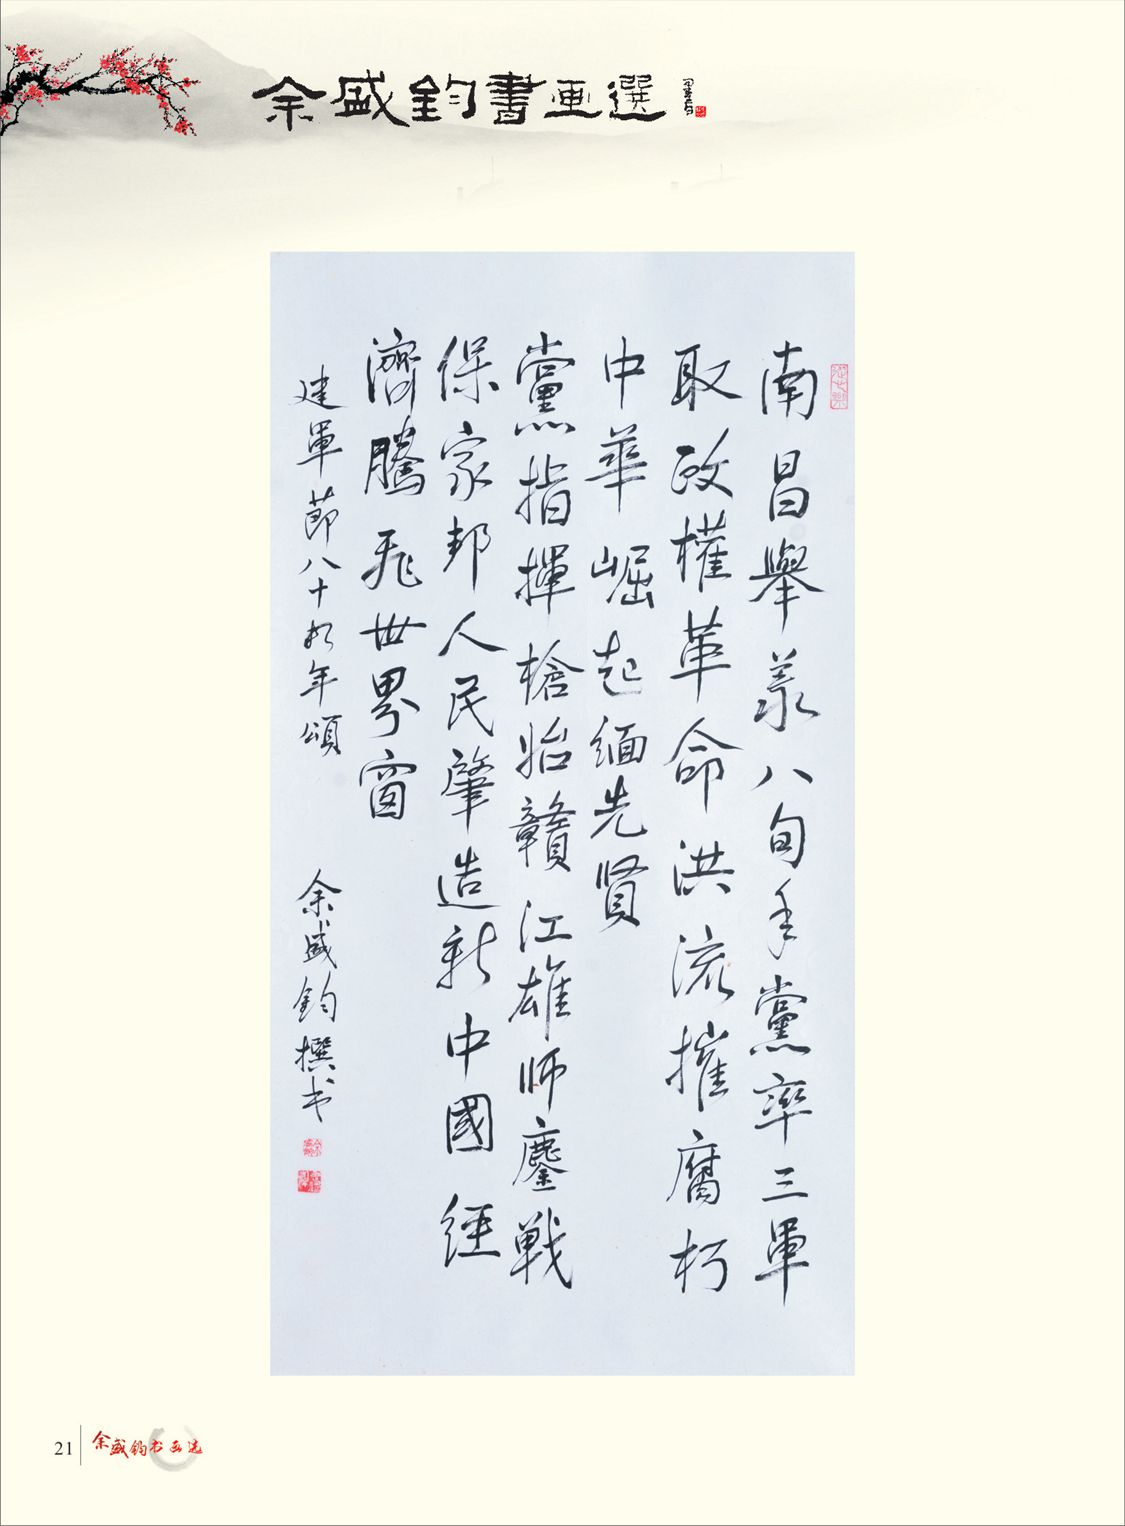 余盛鈞書画選
南昌舉義八旬年黨率三軍
取政權革命洪流摧腐朽
中華崛起緬先贤
黨指揮槍始贛江雄师鏖戰
保家邦人民肇造新中國經
濟騰飛世界窗
建軍節八十年頌
余盛鈞撰书
21
余盛鈞书画选